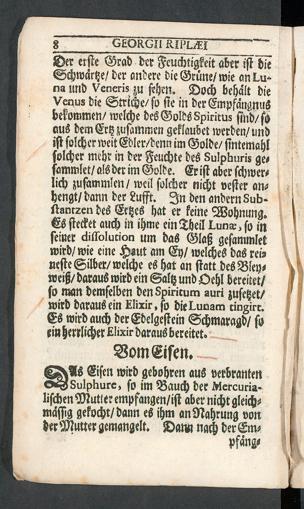 8 GEORGII RIPLÆI
Der erste Grad der Feuchtigkeit aber ist die
Schwärtze/ der andere die Grüne/ wie an Lu-
na und Veneris zu sehen. Doch behält die
Venus die Striche/ so sie in der Empfängnus
bekommen/ welche des Golds Spiritus sind/ so
aus dem Ertz zusammen geklaubet werden/ und
ist solcher weit Edler/ denn im Golde/ sintemahl
solcher mehr in der Feuchte des Sulphuris ge-
sammlet/ als der im Golde. Er ist aber schwer-
lich zusammlen/ weil solcher nicht vester an-
hengt/ dann der Lufft. In den andern Sub-
stantzen des Ertzes hat er keine Wohnung.
Es stecket auch in ihme ein Theil Lunæ, so in
seiner dissolution um das Glaß gesammlet
wird/ wie eine Haut am Ey/ welches das rei-
neste Silber/ welche es hat an statt des Bley-
weiß/ daraus wird ein Saltz und Oehl bereitet/
so man demselben den Spiritum auri zusetzet/
wird daraus ein Elixir, so die Lunam tingirt.
Es wird auch der Edelgestein Schmaragd/ so
ein herrlicher Elixir daraus bereitet.
Vom Eisen.
DAs Eisen wird gebohren aus verbranten
Sulphure, so im Bauch der Mercuria-
lischen Mutter empfangen/ ist aber nicht gleich-
mässig gekocht/ dann es ihm an Nahrung von
der Mutter gemangelt. Dann nach der Em-
pfäng-